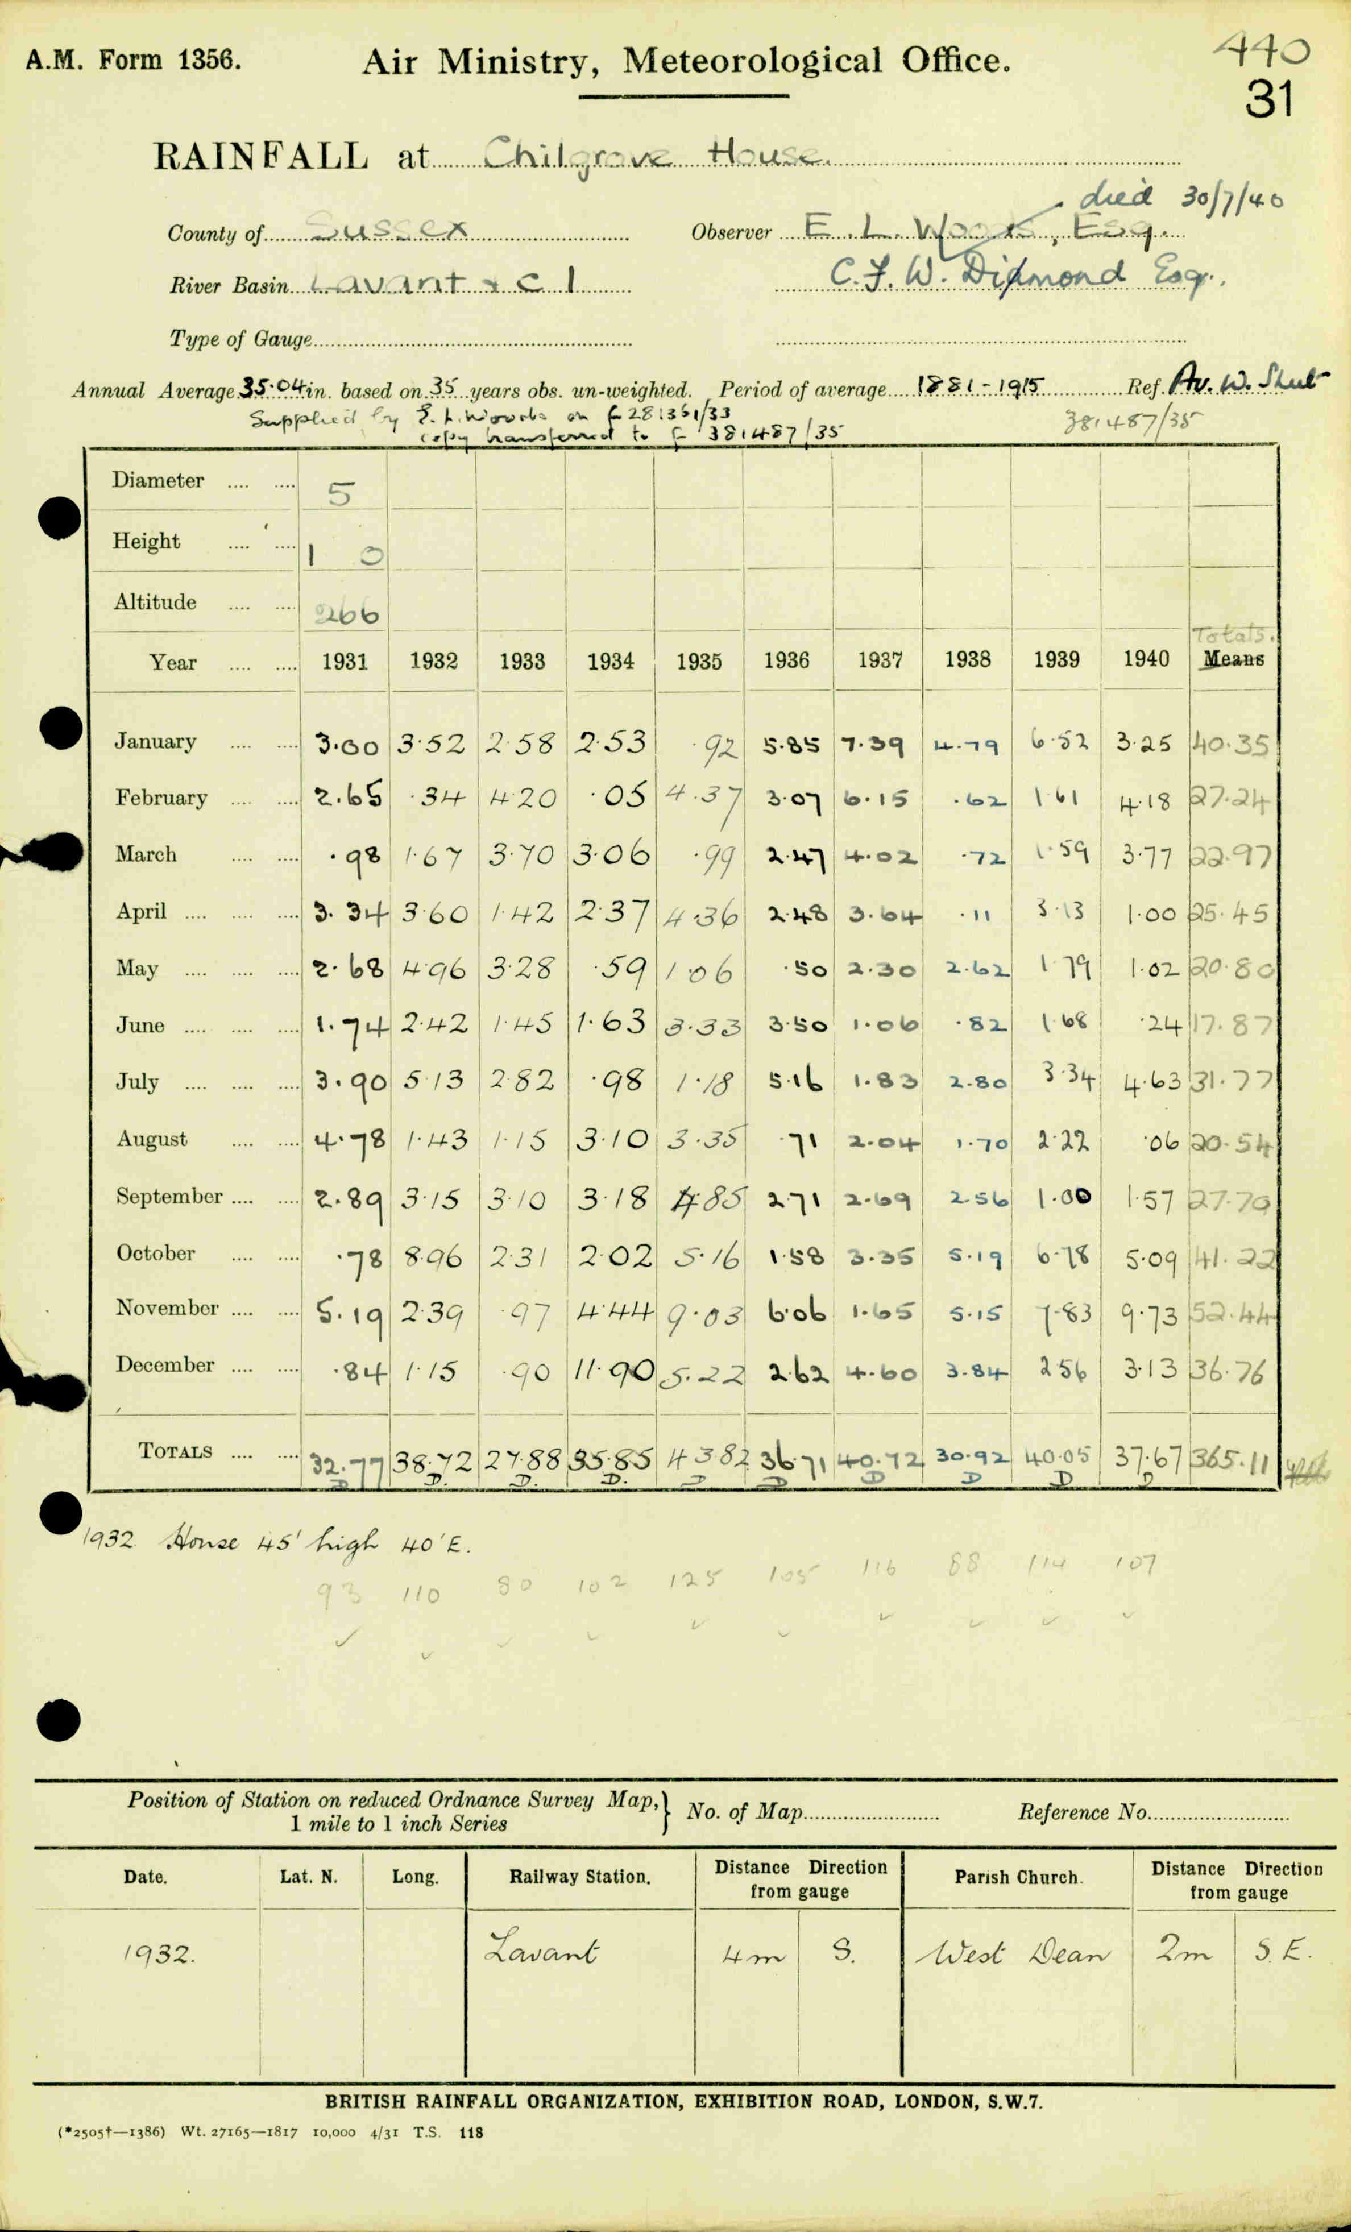 A.M. Form 1356. Air Ministry, Meteorological Office. 440
31
RAINFALL at Chilgrove House.
died 30/7/40
County of Sussex Observer E. L. Woods, Esq.
River Basin Lavant & c 1 C. F. W. Dimond Esq.
Type of Gauge
Annual Average 35.04 in. based on 35 years obs. un-weighted. Period of average 1881-1915 Ref. Av. W. Shut
Supplied by E. L. Woods on f 281361/33 381487/35
copy transferred to f 381487/35
Diameter 5
Height 1 0
Altitude 266
Totals.
Year 1931 1932 1933 1934 1935 1936 1937 1938 1939 1940 Means
January 3.00 3.52 2.58 2.53 .92 5.85 7.39 4.79 6.52 3.25 40.35
February 2.65 .34 4.20 .05 4.37 3.07 6.15 .62 1.61 4.18 27.24
March .98 1.67 3.70 3.06 .99 2.47 4.02 .72 1.59 3.77 22.97
April 3.34 3.60 1.42 2.37 4.36 2.48 3.64 .11 3.13 1.00 25.45
May 2.68 4.96 3.28 .59 1.06 .50 2.30 2.62 1.79 1.02 20.80
June 1.74 2.42 1.45 1.63 3.33 3.50 1.06 .82 1.68 .24 17.87
July 3.90 5.13 2.82 .98 1.18 5.16 1.83 2.80 3.34 4.63 31.77
August 4.78 1.43 1.15 3.10 3.35 .71 2.04 1.70 2.22 .06 20.54
September 2.89 3.15 3.10 3.18 4.85 2.71 2.69 2.56 1.00 1.57 27.70
October .78 8.96 2.31 2.02 5.16 1.58 3.35 5.19 6.78 5.09 41.22
November 5.19 2.39 .97 4.44 9.03 6.06 1.65 5.15 7.83 9.73 52.44
December .84 1.15 .90 11.90 5.22 2.62 4.60 3.84 2.56 3.13 36.76
TOTALS 32.77 38.72 27.88 35.85 43.82 36.71 40.72 30.92 40.05 37.67 365.11
D D. D. D. D D D D D D
1932 House 45' high 40' E.
93 110 80 102 125 105 116 88 114 107
Position of Station on reduced Ordnance Survey Map, } No. of Map Reference No.
1 mile to 1 inch Series
Date. Lat. N. Long. Railway Station. Distance Direction from gauge Parish Church. Distance Direction from gauge
1932. Lavant 4m S. West Dean 2m S.E.
BRITISH RAINFALL ORGANIZATION, EXHIBITION ROAD, LONDON, S.W.7.
(*2505†—1386) Wt. 27165—1817 10,000 4/31 T.S. 118